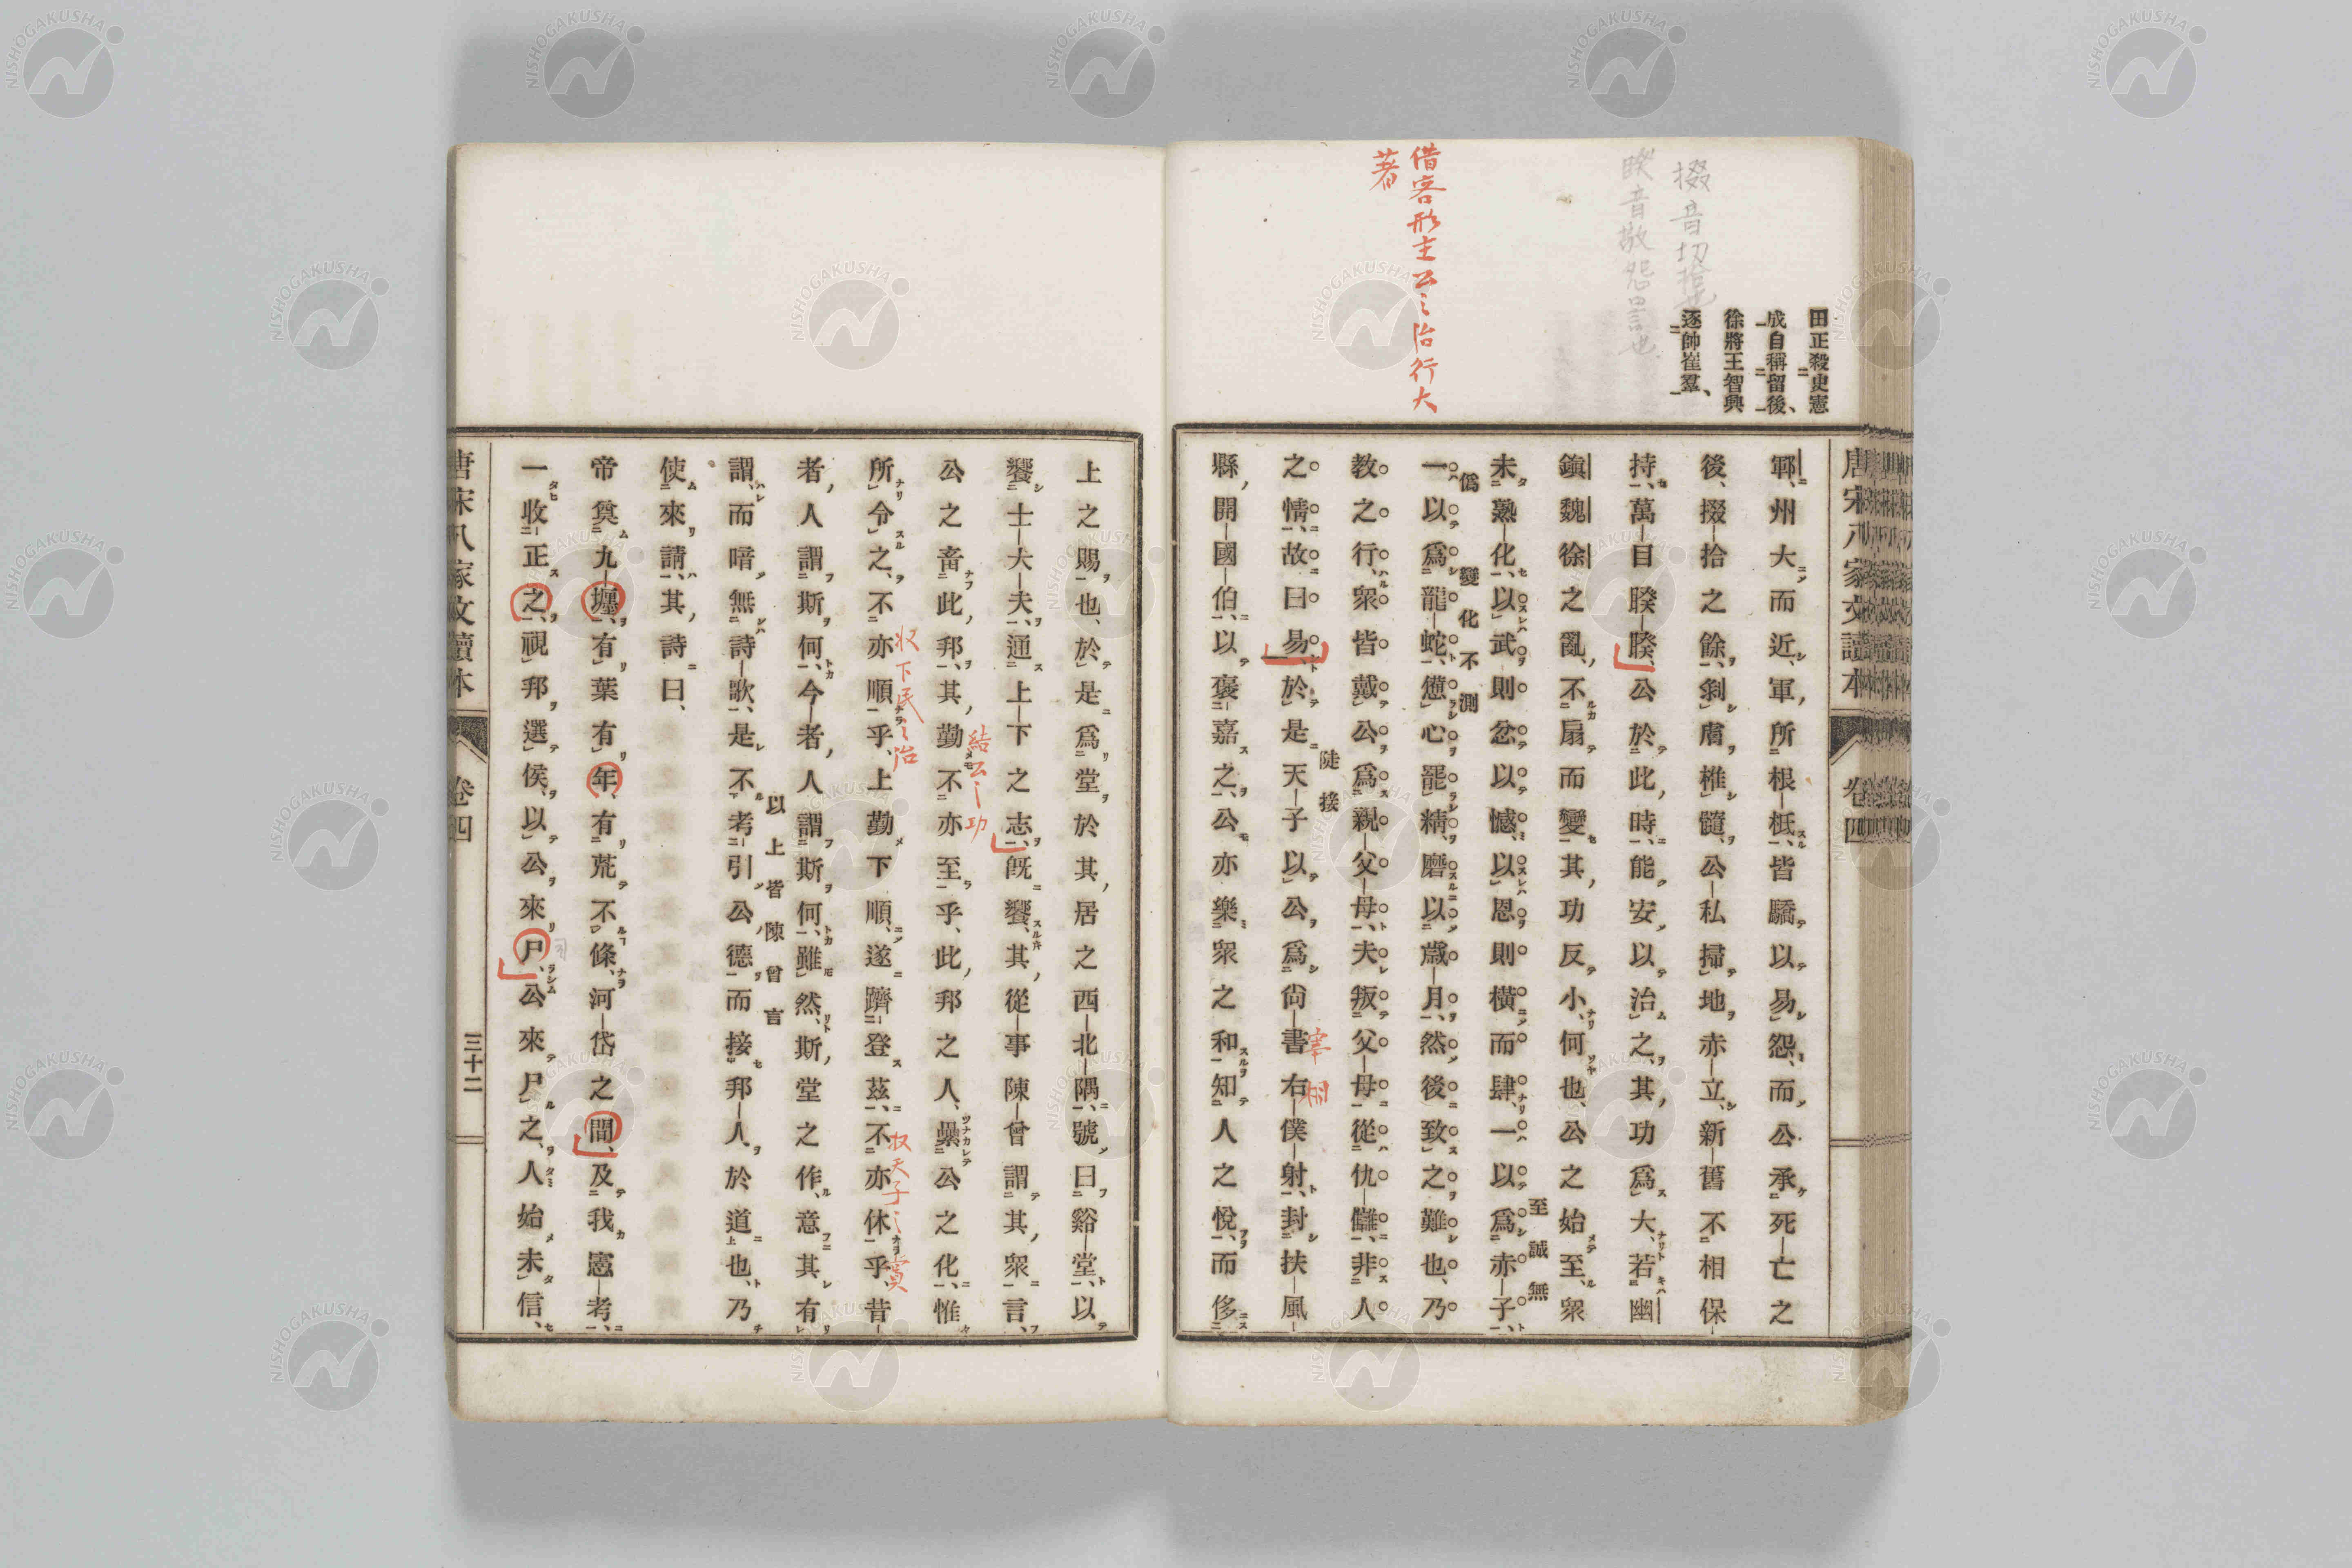 唐宋八家文讀本
卷四
田正殺史憲
成自稱留後、
徐將王智興
逐帥崔羣、
借客形主公之治行大
著
鄆、州大而近、軍所根柢、皆驕以易怨、而公承死亡之
後、掇拾之餘、剝膚椎髓、公私掃地赤立、新舊不相保
持、萬目睽睽、公於此時、能安以治之、其功爲大、若幽
鎭魏徐之亂、不扇而變、其功反小、何也、公之始至、衆
至誠無
未熟化、以武則忿以憾、以恩則橫而肆、一以爲赤子、
僞變化不測
一以爲龍蛇、憊心罷精、磨以歲月、然後致之難也、乃
教之行、衆皆戴公爲親父母、夫叛父母從仇讎、非人
陡接
宰相
之情、故曰易、於是天子以公爲尙書右僕射、封扶風
縣開國伯、以褒嘉之、公亦樂衆之和知人之悅、而侈
上之賜也、於是爲堂於其居之西北隅、號曰谿堂、以
饗士大夫、通上下之志、既饗、其從事陳曾謂其衆言、
結公之功
公之畜此邦、其勤不亦至乎、此邦之人、纍公之化、惟
收下民之治
收天子之賞
所令之、不亦順乎、上勤下順、遂躋登茲、不亦休乎、昔
者、人謂斯何、今者、人謂斯何、雖然、斯堂之作、意其有
以上皆陳曾言
謂、而喑無詩歌、是不考引公德而接邦人於道也、乃
使來請、其詩曰、
帝奠九壥、有葉有年、有荒不條、河岱之間、及我憲考、
一收正之、視邦選侯、以公來尸、公來尸之、人始未信、
唐宋八家文讀本
卷四
三十二
NISHOGAKUSHA